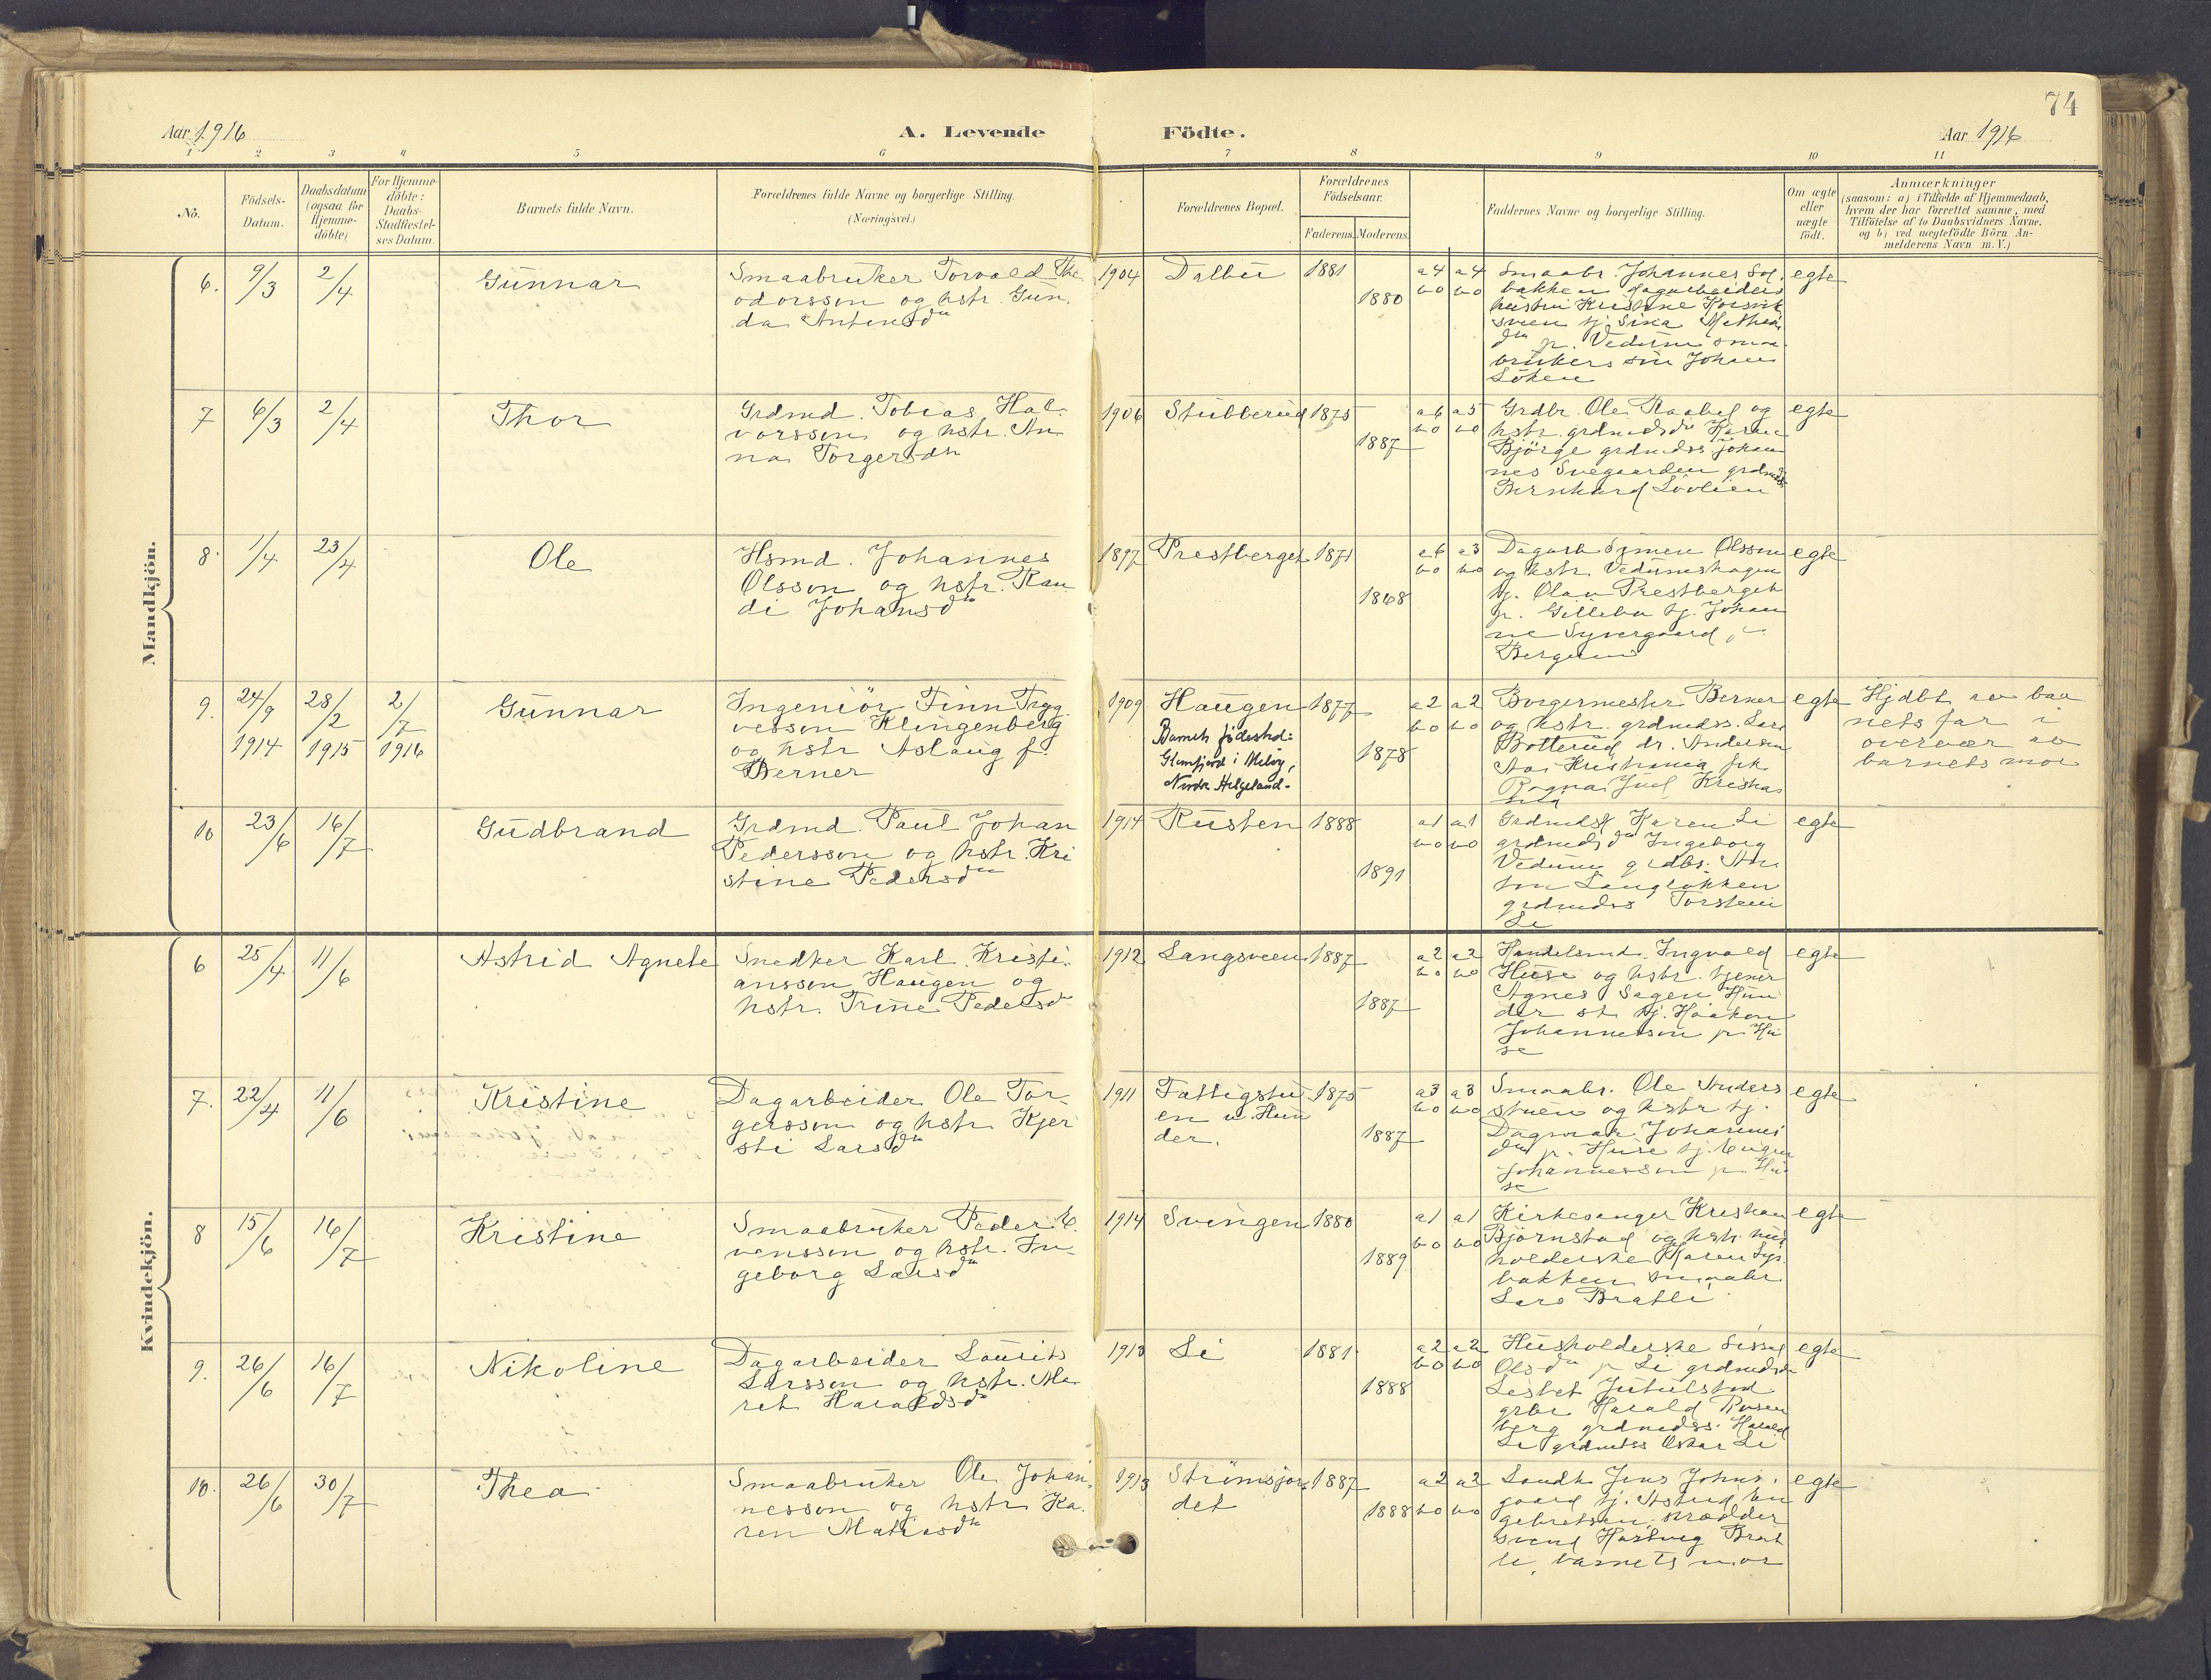 74
Aar 1916
A. Levende
Födte.
Aar 1916
1 2 3 4 5 6 7 8 9 10 11
No.
Födsels-
Datum.
Daabsdatum
(ogsaa for
Hjemme-
döbte)
For Hjemme-
döbte:
Daabs-
Stadfæstel-
ses Datum.
Barnets fulde Navn.
Forældrenes fulde Navne og borgerlige Stilling.
(Næringsvei.)
Forældrenes Bopæl.
Forældrenes
Födselsaar.
Faderens. Moderens.
Faddernes Navne og borgerlige Stilling.
Om ægte
eller
uægte
födt.
Anmærkninger
(saasom: a) i Tilfælde af Hjemmedaab,
hvem der har forrettet samme, med
Tilföielse af to Daabsvidners Navne.
og b) ved uægtefödte Börn An-
melderens Navn m. V.)
Mandkjön.
6. 9/3 2/4 Gunnar
Smaabruker Torvald The
odorssøn og hstr. Gun
da Antonsdtr
1904 Dalbu 1881 1880
a4 a4
b0 b0
Smaabr. Johannes Sol
bakken dagarbeiders
hustru Kristine
sveen tj. Sina
dtr p. Vedum smaa
brukers søn Johan
Löken
egte
7 6/3 2/4 Thor
Grdmd. Tobias Hal-
vorssøn og hstr. An
na Torgersdtr
1906 Stubberud 1875 1887
a6 a5
b0 b0
Grdbr. Ole Raabøl og
hstr. grdmdsdtr Karen
Björge grdmdss. Johan
nes Svegaarden grdmdss
Bernhard Lövlien
egte
8. 1/4 23/4 Ole
Hsmd. Johannes
Olsson og hstr. Ran
di Johansdtr
1897 Prestberget 1871 1868
a6 a3
b0 b0
Dagarb. Simen Olsson
og hstr. Vedumshagen
tj. Olav Prestberget
p. Gillebu tj. Johan
ne Syvergaard p.
Bergum
egte
9. 24/9 1914 28/2 1915 2/7 1916 Gunnar
Ingeniör Finn Tryg
vesson Klingenberg
og hstr Aslaug f.
Berner
1909 Haugen
Barnets fødested:
Glomfjord i Meløy,
Nordre Helgeland.
1877 1878
a2 a2
b0 b0
Borgermester Berner
og hstr. grdmdss. Lars
Botterud dr. Andersen
Aas Kristiania frk.
Ragna Juel Kristia
nia
egte
Hjdbt av bar
nets far i
overvær av
barnets mor
10 23/6 16/7 Gudbrand
Grdmd. Paul Johan
Pedersson og hstr. Kri
stine Pedersdtr
1914 Rusten 1888 1891
a1 a1
b0 b0
Grdmdsk Karen Li
grdmdsdtr Ingeborg
Vedum grdbr. An
ton Langløkken
grdmdss Torstein
Li
egte
Kvindekjön.
6 25/4 11/6 Astrid Agnete
Snedker Karl Kristi
ansson Haugen og
hstr. Trine Pedersdtr
1912 Langsveen 1887 1887
a2 a2
b0 b0
Handelsmd. Ingvald
Huse og hstr. tjener
Agnes Sagen Hun
der st. tj. Haakon
Johannesson p. Hu
se
egte
7. 22/4 11/6 Kristine
Dagarbeider Ole Tor-
gersson og hstr. Kjer
sti Larsdtr
1911 Fattigstu
en u. Hun
der.
1875 1887
a3 a3
b0 b0
Smaabr. Ole Anders
stuen og hstr. tj.
Dagmar Johannes
dtr p. Huse tj. Eugen
Johannesson p. Hu
se
egte
8 15/6 16/7 Kristine
Smaabruker Peder E-
vensson og hstr. In
geborg Larsdtr
1914 Svingen 1880 1889
a1 a1
b0 b0
Kirkesanger Kristian
Björnstad og hstr. hus
holderske Karen
bakken smaabr.
Lars Bratli
egte
9. 26/6 16/7 Nikoline
Dagarbeider Laurits
Larsson og hstr. Ma
rit Haraldsdtr
1913 Li 1881 1888
a2 a2
b0 b0
Husholderske Sissel
Olsdtr p. Li grdmdsdtr
Lisbet Jutulstad
grbr Harald Rosen
berg grdmdss. Harald
Li grdmdss Oskar Li
egte
10. 26/6 30/7 Thea
Smaabruker Ole Johan
nesson og hstr. Ka
ren Matiasdtr
1913 Strømsjor
det
1887 1888
a2 a2
b0 b0
Landh. Jens Johns
gaard tj. Astrid En
gebretsen, skrædder
svend Hartvig Brat
li, barnets mor
egte